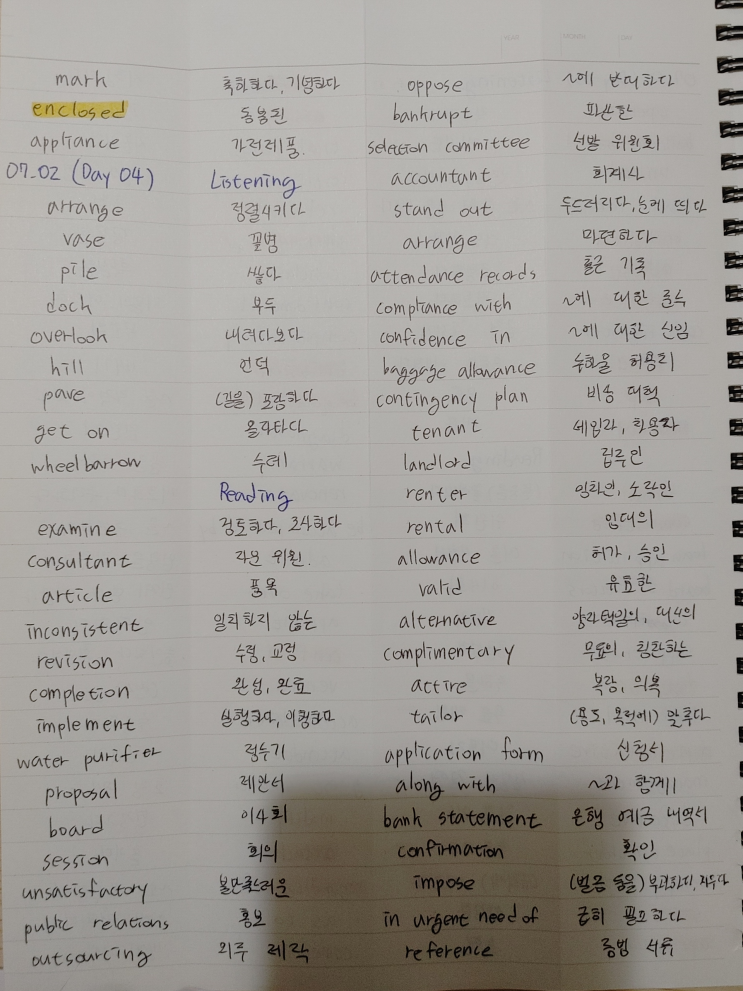 mark 축하하다, 기념하다
enclosed 동봉된
appliance 가전제품
07.02 (Day 04) Listening
arrange 정렬시키다
vase 꽃병
pile 쌓다
dock 부두
overlook 내려다보다
hill 언덕
pave (길을) 포장하다
get on 올라타다
wheelbarrow 수레
Reading
examine 검토하다, 조사하다
consultant 자문 위원.
article 품목
inconsistent 일치하지 않는
revision 수정, 교정
completion 완성, 완료
implement 실행하다, 이행하다
water purifier 정수기
proposal 제안서
board 이사회
session 회의
unsatisfactory 불만족스러운
public relations 홍보
outsourcing 외주 제작
oppose ~에 반대하다
bankrupt 파산한
selection committee 선발 위원회
accountant 회계사
stand out 두드러지다, 눈에 띄다
arrange 마련하다
attendance records 출근 기록
compliance with ~에 대한 준수
confidence in ~에 대한 신임
baggage allowance 수하물 허용치
contingency plan 비상 대책
tenant 세입자, 차용자
landlord 집주인
renter 임차인, 소작인
rental 임대의
allowance 허가, 승인
valid 유효한
alternative 양자택일의, 대신의
complimentary 무료의, 칭찬하는
attire 복장, 의복
tailor (용도, 목적에) 맞추다
application form 신청서
along with ~과 함께
bank statement 은행 예금 내역서
confirmation 확인
impose (벌금 등을) 부과하다, 지우다
in urgent need of 급히 필요하다
reference 증빙 서류